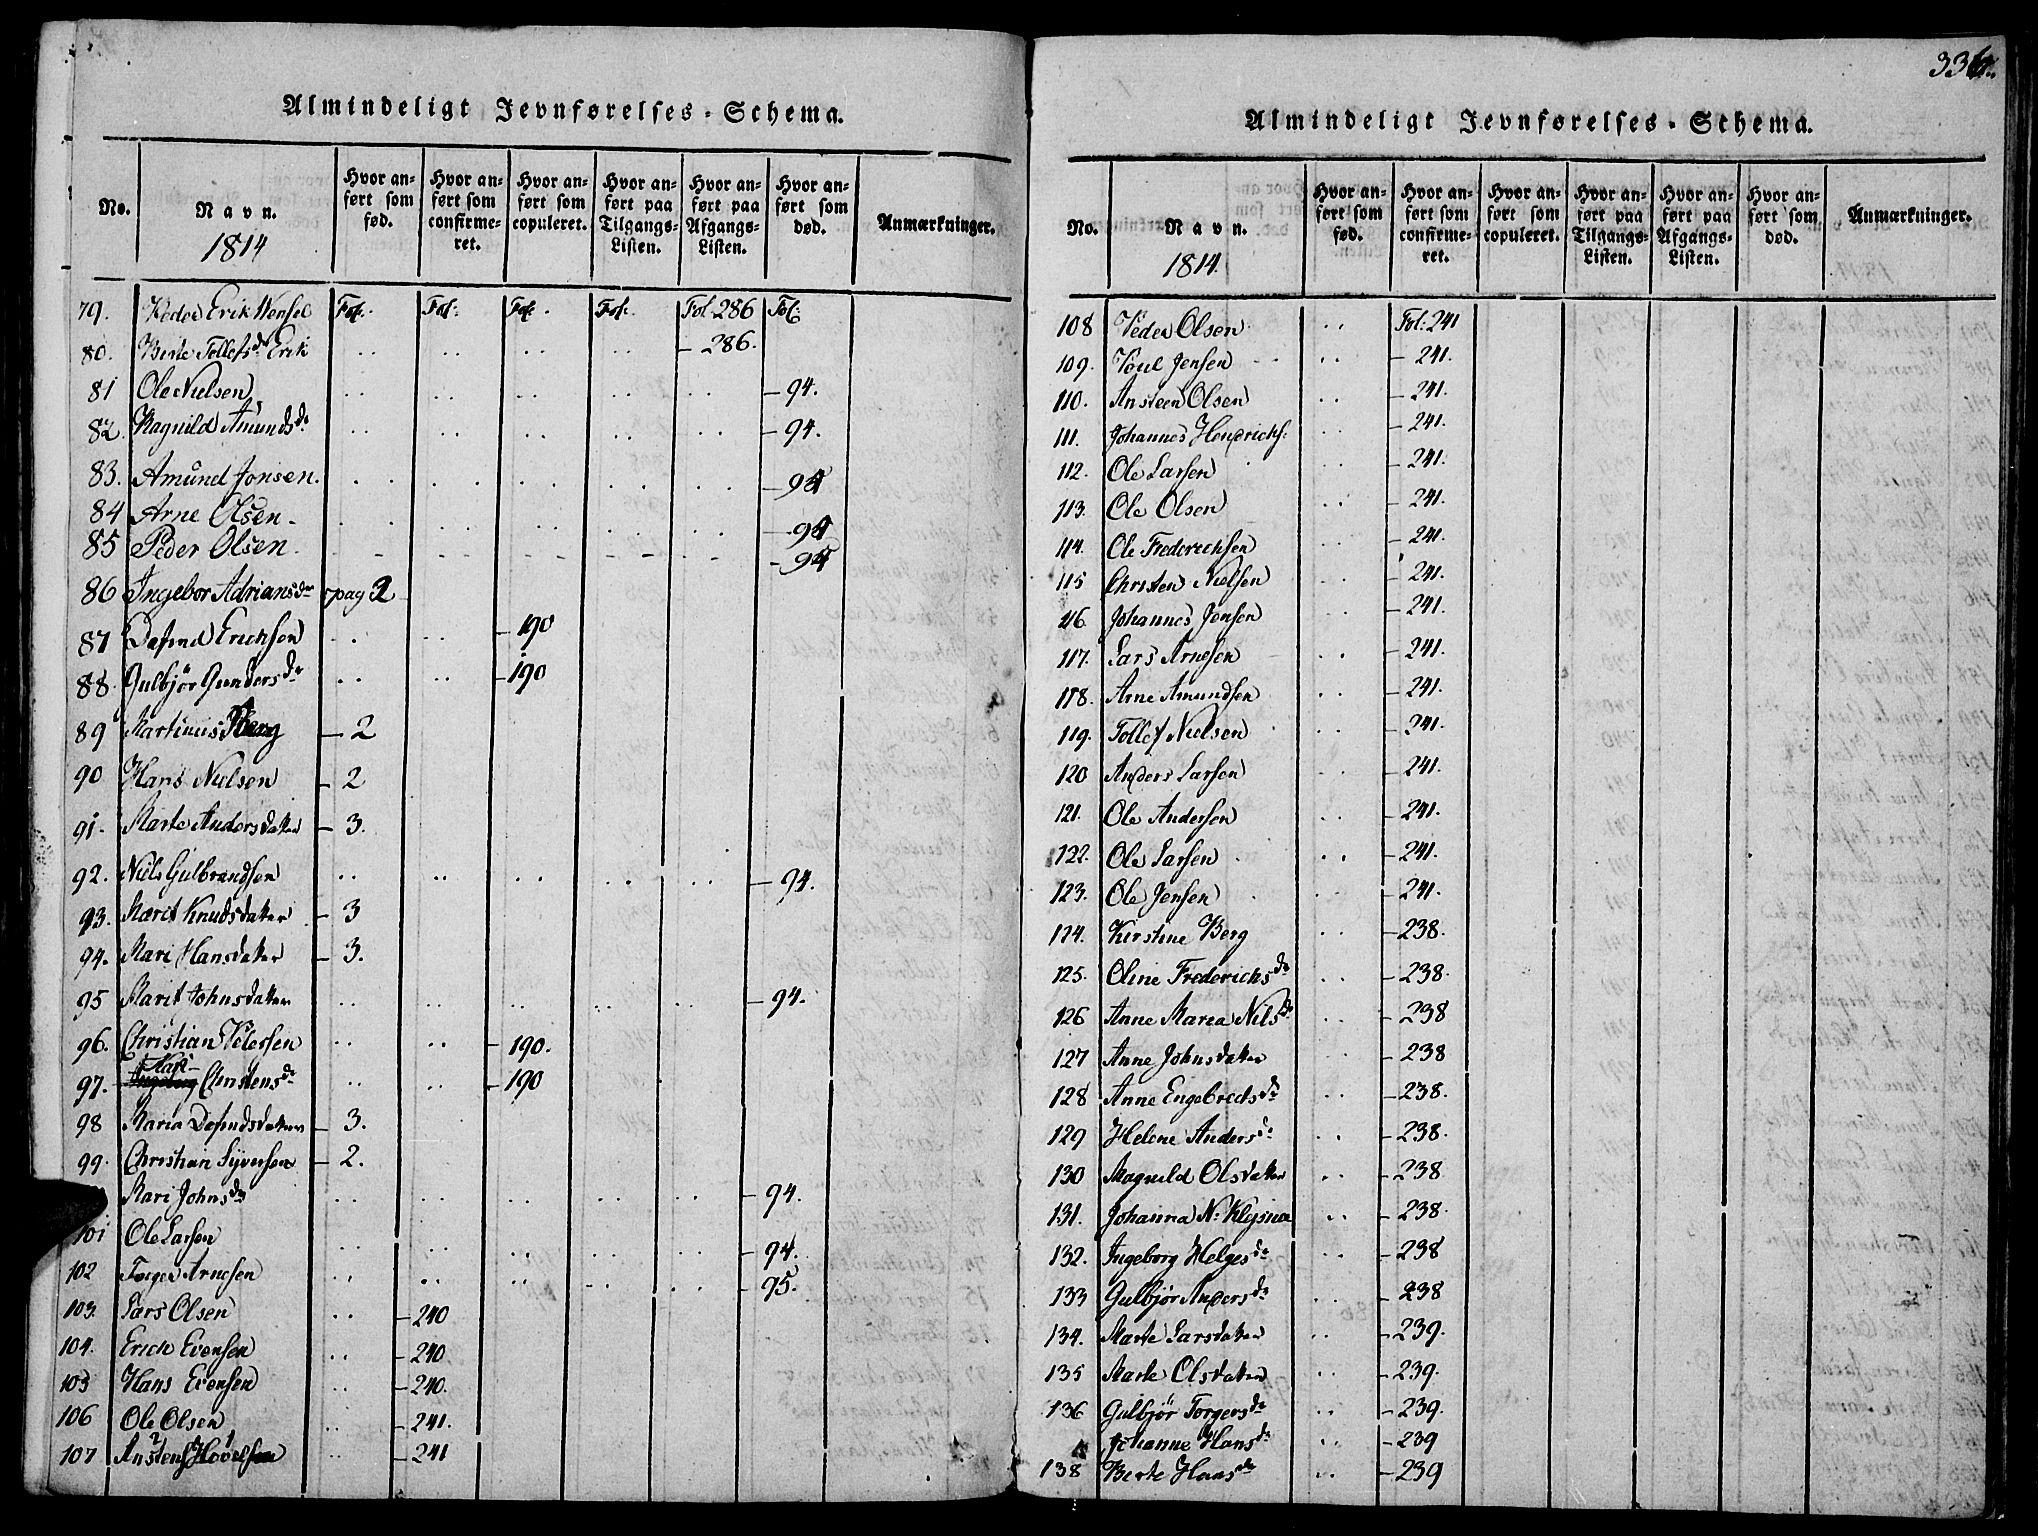 Almindeligt Jevnførelses-Schema.
No. Navn. Hvor anført som fød. Hvor anført som confirmeret. Hvor anført som copuleret. Hvor anført paa Tilgangs-Listen. Hvor anført paa Afgangs-Listen. Hvor anført som død. Anmærkninger.
1814
79. Peder Erik Wensel Fol. Fol: Fol. Fol: Fol. 286 Fol:
80. Berte Tollefsdr Erik - 286.
81 Ole Nielsen - 94.
82. Ragnild Amundsdr - 94.
83. Amund Jonsen. - 94
84 Arne Olsen - - 94
85 Peder Olsen. - 94
86 Ingebor Adriansdr pag 2
87 Dafind Erichsen - 190
88. Gulbjør Gundersdr - 190
89 Martinus Berg - 2
90 Hans Nielsen - 2
91. Marte Andersdatter - 3.
92. Niels Gulbrandsen - 94.
93. Marit Knudsdatter - 3
94. Mari Hansdatter - 3.
95 Marit Johnsdatter - 94.
96. Christian Petersen - 190.
Kari
97. Ingeborg Christensdr - 190
98 Maria Dafindsdatter - 3.
99. Christian Syversen - 2.
Mari Johnsdr - 94.
101 Ole Larsen - 94.
102 Torger Arnesen - 95.
103. Lars Olsen - 240
104. Erich Evensen - 240
105 Hans Evensen - 240.
106 Ole Olsen - 241.
107 Anstens Hovelsen - 241
336.
Almindeligt Jevnførelses-Schema.
No. Navn. Hvor anført som fød. Hvor anført som confirmeret. Hvor anført som copuleret. Hvor anført paa Tilgangs-Listen. Hvor anført paa Afgangs-Listen. Hvor anført som død. Anmærkninger.
1814.
108 Peder Olsen Fol: 241
109. Poul Jensen - 241.
110. Ansteen Olsen - 241.
111. Johannes Hendrichs: - 241.
112. Ole Larsen - 241.
113. Ole Olsen - 241.
114. Ole Frederichsen - 241.
115 Christen Nielsen - 241.
116. Johannes Jensen - 241.
117. Lars Arnesen - 241.
118. Arne Amundsen - 241.
119. Tollef Nielsen - 241.
120 Anders Larsen - 241.
121. Ole Andersen - 241.
122. Ole Larsen - 241.
123. Ole Jensen - 241.
124. Kirstine Berg - 238.
125. Oline Frederichsdr - 238.
126 Anne Maria Nilsdr - 238
127 Anne Johnsdatter - 238
128 Anne Engebretsdr - 238.
129 Helene Andersdr - 238.
130 Magnild Olsdatter - 238
131. Johanna N: Klysna - 238.
132. Ingeborg Helgesdr - 238
133 Gulbjør Andersdr - 238
134. Marte Larsdatter - 239.
135 Marte Olsdatter - 239.
136 Gulbjør Torgersdr - 239.
Johanne Hansdr - 239
138 Berte Hansdr - 239